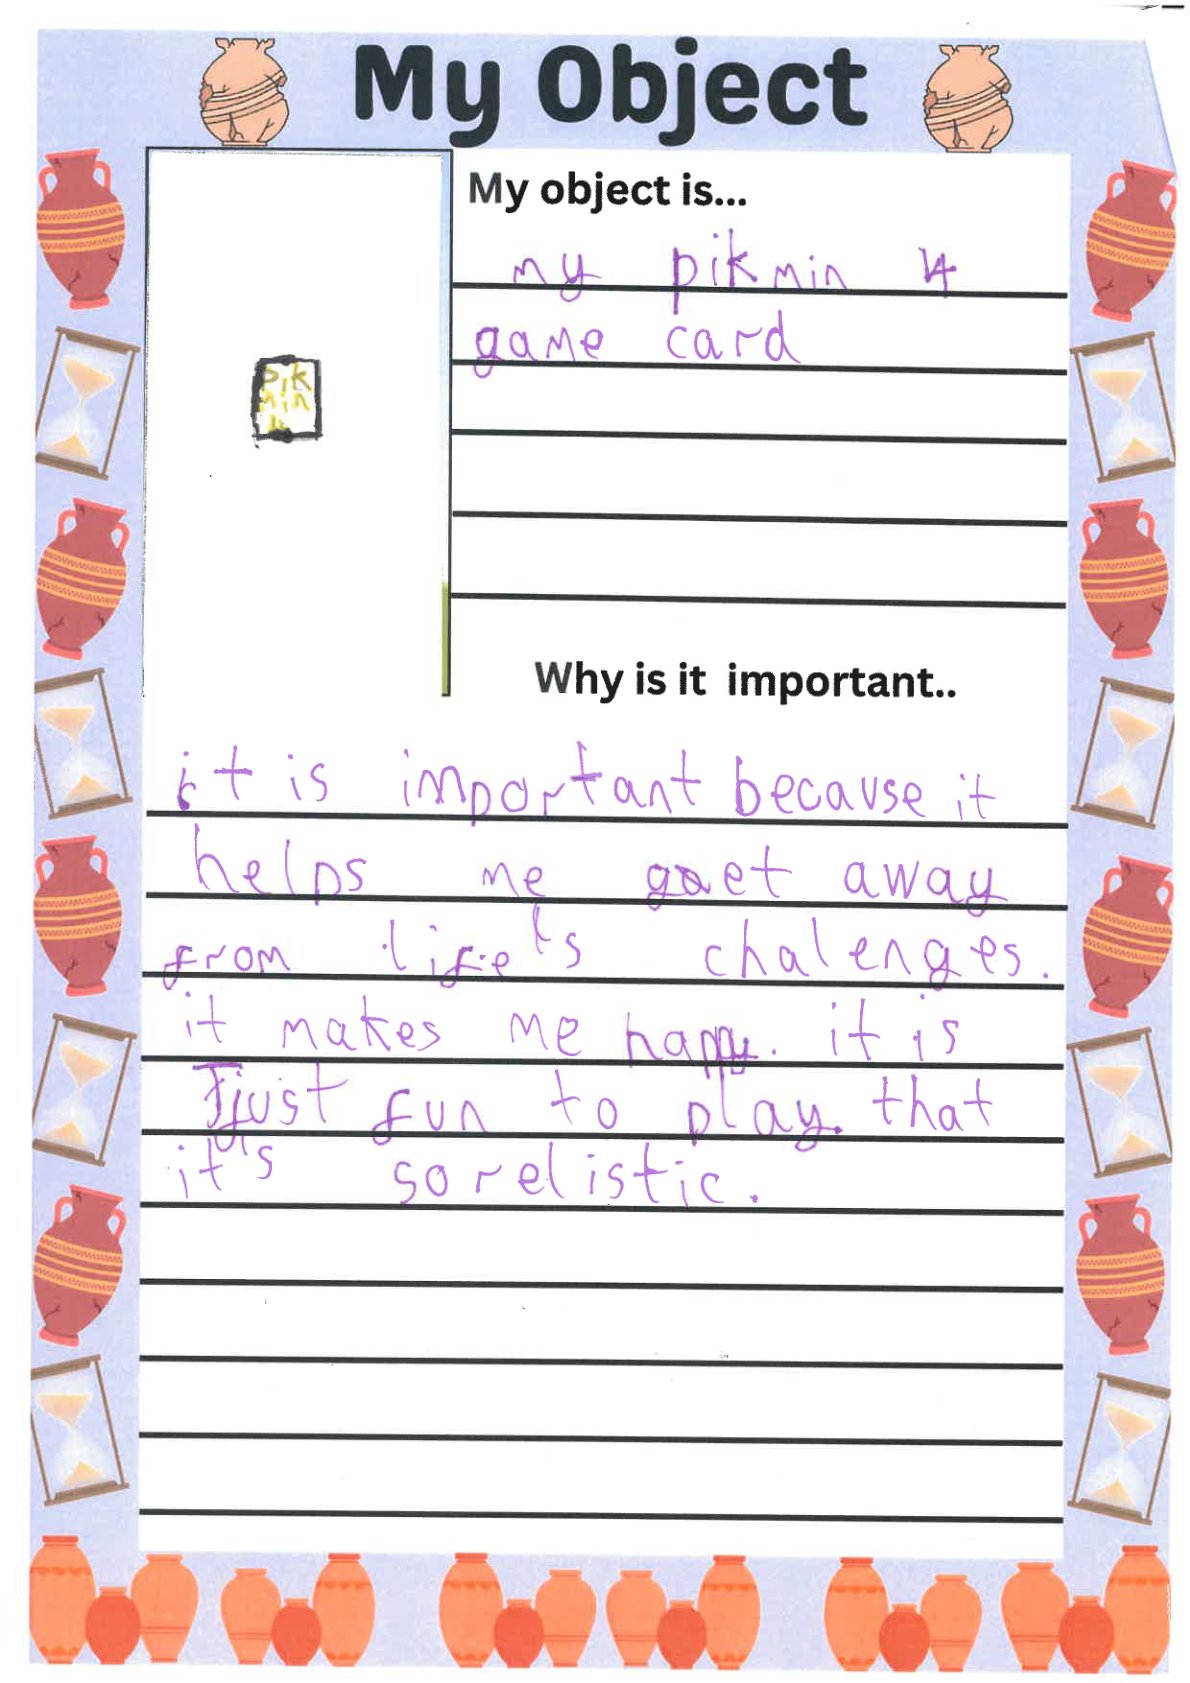 My Object
My object is...
my pikmin 4
game card
Pik
min
4
Why is it important..
it is important because it
helps me get away
from life's chalenges.
it makes me happy. it is
just fun to play. that
it's so relistic.